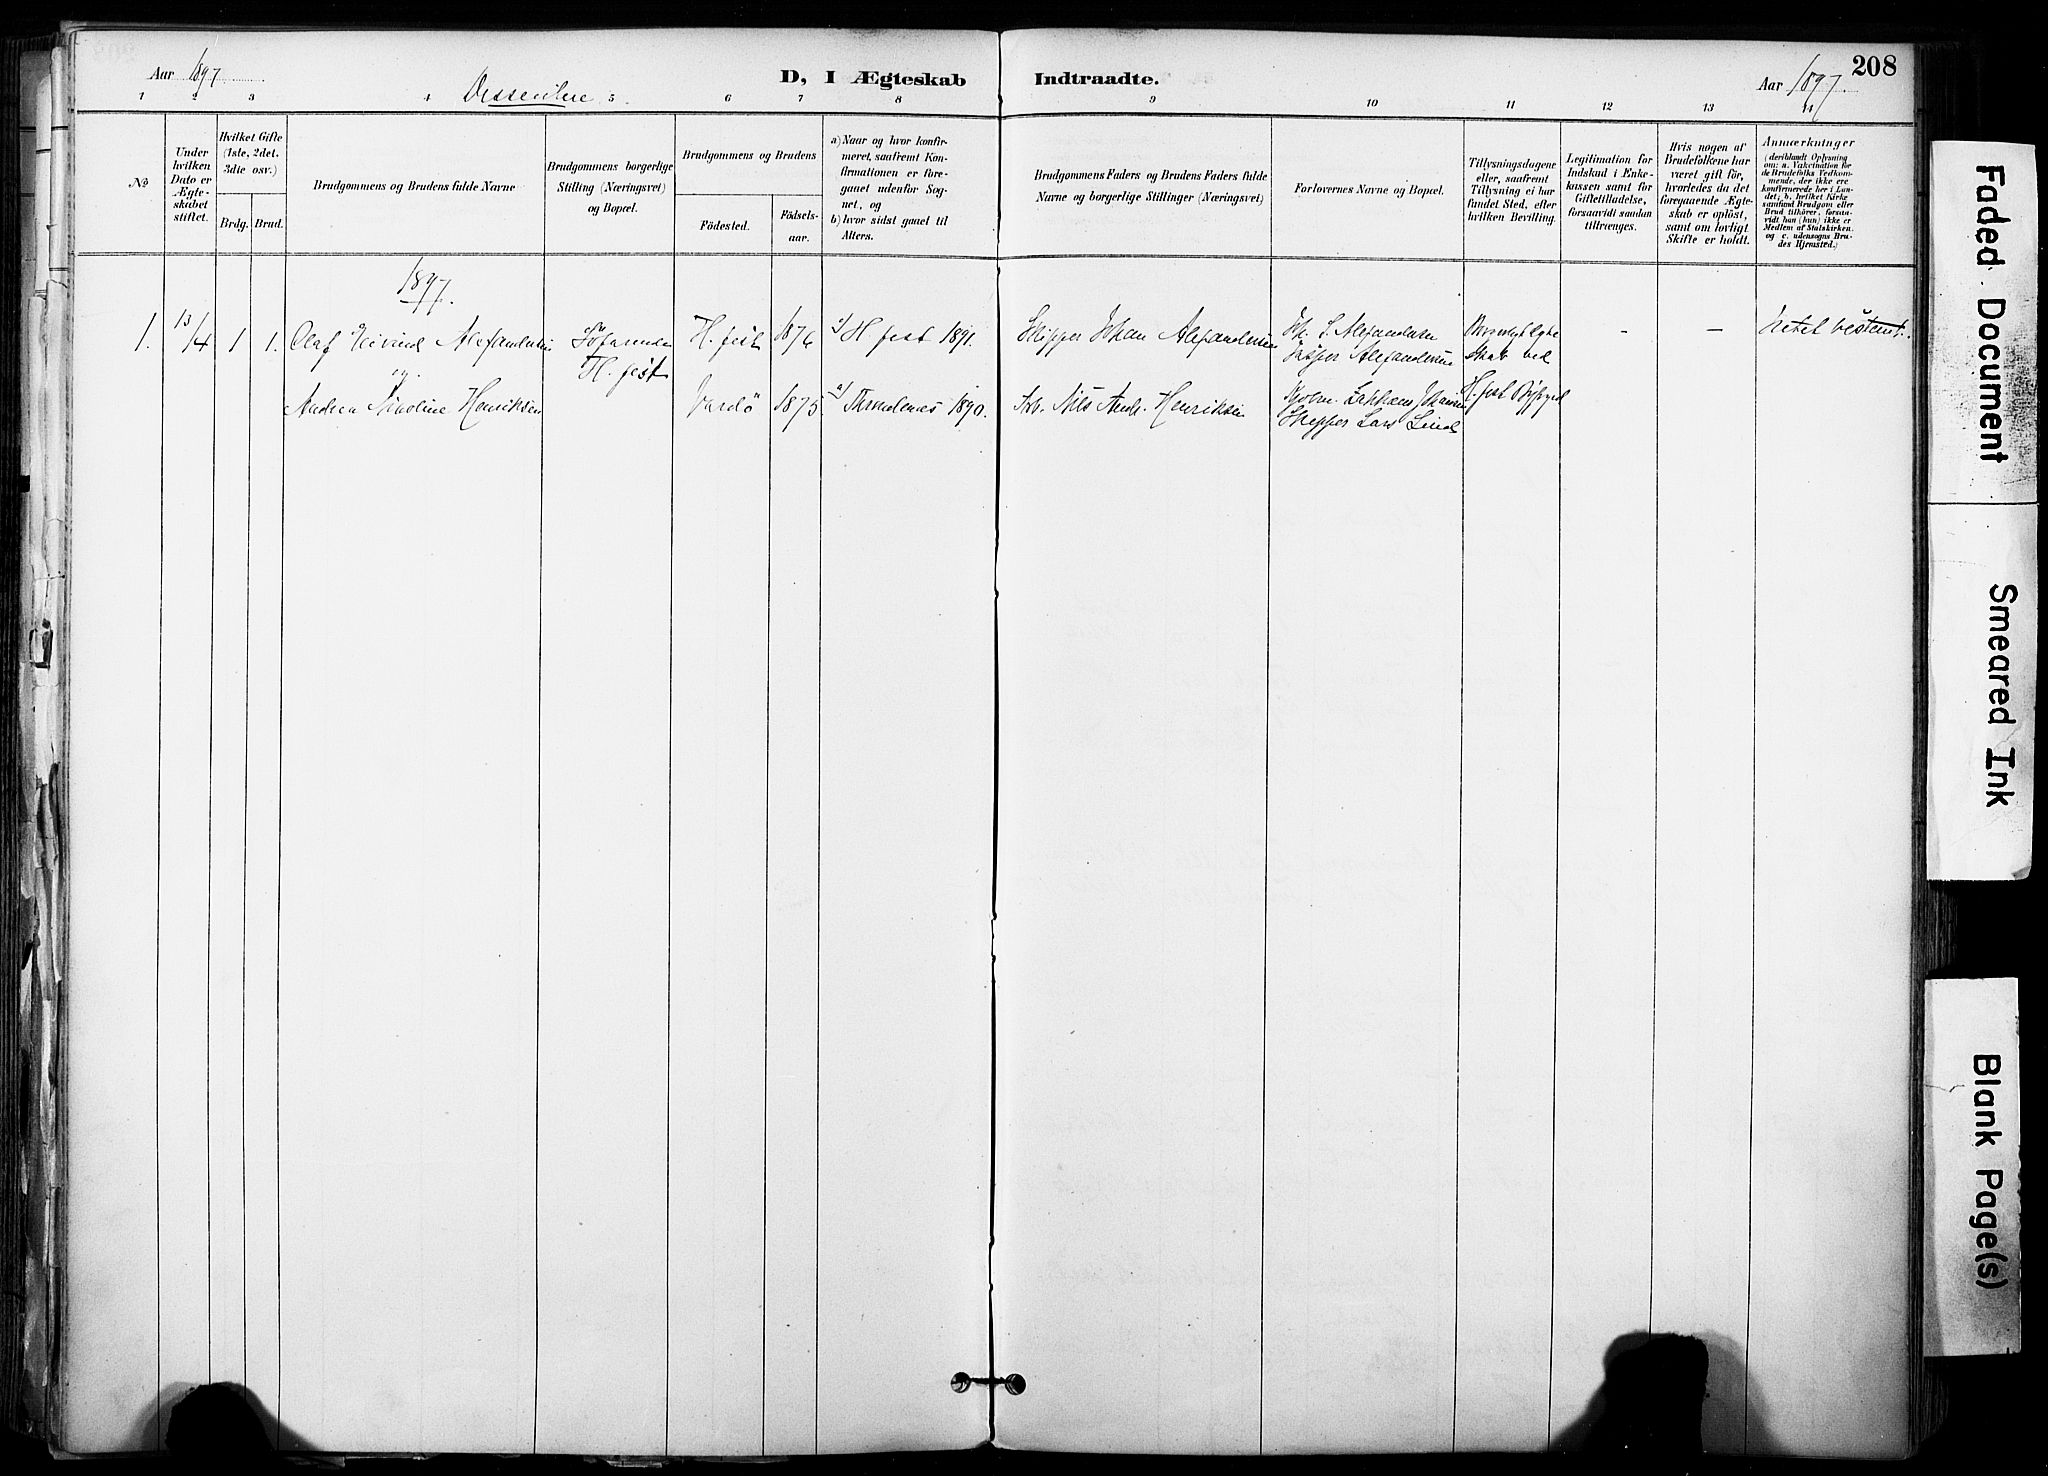 Aar 1897
D, I Ægteskab Indtraadte.
Aar 1897.
208
Dissentere
1 2 3 4 5 6 7 8 9 10 11 12 13 14
No
Under hvilken Dato er Ægteskabet stiftet.
Hvilket Gifte (1ste, 2det, 3die osv.)
Brdg. Brud.
Brudgommens og Brudens fulde Navne
Brudgommens borgerlige Stilling (Næringsvei) og Bopæl.
Brudgommens og Brudens
Födested.
Födselsaar.
a) Naar og hvor konfirmeret, saafremt Konfirmationen er foregaaet udenfor Sognet, og
b) hvor sidst gaaet til Alters.
Brudgommens Faders og Brudens Faders fulde Navne og borgerlige Stillinger (Næringsvei)
Forlovernes Navne og Bopæl.
Tillysningsdagene eller, saafremt Tillysning ei har fundet Sted, efter hvilken Bevilling.
Legitimation for Indskud i Enkekassen samt for Giftetilladelse, forsaavidt saadan tiltrænges.
Hvis nogen af Brudefolkene har været gift för, hvorledes da det foregaaende Ægteskab er oplöst, samt om lovligt Skifte er holdt.
Anmærkninger
(deriblandt Oplysning om: a. Vakcination for de Brudefolks Vedkommende, der ikke ere konfirmerede her i Landet; b. hvilket Kirkesamfund Brudgom eller Brud tilhörer, forsaavidt han (hun) ikke er Medlem af Statskirken, og c. udensogns Brudes Hjemsted.)
1897.
1. 13/4 1 1. Olaf Eivind Alexandersen H. fest 1876 a) H. fest 1891. Skipper Johan Alexandersen Joh. S. Alexandersen Borgerligt Ægte - - Intet bestemt.
og H. fest Jasper Alexandersen skab ved
Andrea Nicoline Henriksen Vardö 1875 a) Throndenes 1890. Arb. Nils Andr. Henriksen Johansen H. fest Byfoged
Skipper Lars Lind
Faded Document
Smeared Ink
Blank Page(s)